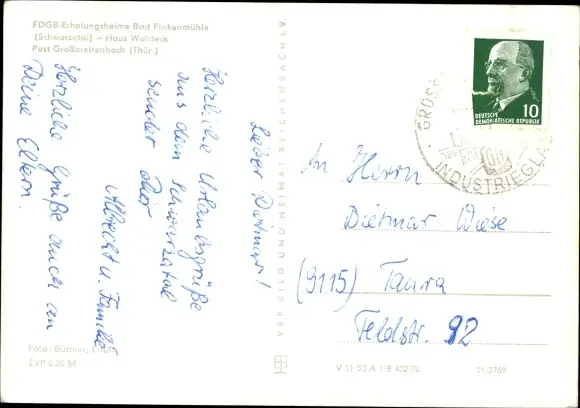 FDGB-Erholungsheime Bad Finkenmühle
(Schwarzatal) – Haus Waldeck
Post Großbreitenbach (Thür.)
Lieber Dietmar!
Herzliche Urlaubsgrüße
aus dem Schwarzatal
sendet Dir
Albrecht u. Familie
Herzliche Grüße auch an
Deine Eltern.
Foto: Büttner, Erfurt
EVP 0,20 M
VEB BILD UND HEIMAT REICHENBACH I. V.
DEUTSCHE
DEMOKRATISCHE REPUBLIK
10
GROSSB
INDUSTRIEGLA
An Herrn
Dietmar Wiese
(9115) Taura
Feldstr. 92
V 11 50 A 1/B 402/70
11/3769